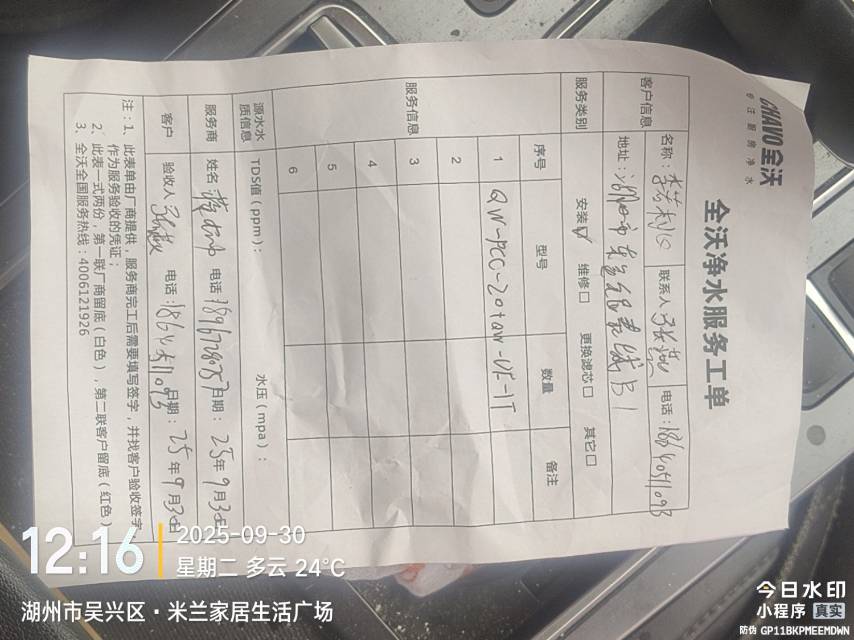 CHAVO全沃
专注厨房净水
全沃净水服务工单
客户信息
名称：
联系人
电话：18640511093
地址：湖州市
B1
服务类别
安装☑ 维修□ 更换滤芯□ 其它□
服务信息
序号 型号 数量 备注
1 QW-PCC-20+QW-UF-1T
2
3
4
5
6
源水水质信息
TDS值（ppm）： 水压（mpa）：
服务商 姓名 电话 18967080757 日期：25年9月30日
客户 验收人 电话：18640511093 日期：25年9月30日
注：1、此表单由厂商提供，服务商完工后需要填写签字，并找客户验收签字
作为服务验收的凭证；
2、此表一式两份，第一联厂商留底（白色），第二联客户留底（红色）
3、全沃全国服务热线：4006121926
12:16
2025-09-30
星期二 多云 24℃
湖州市吴兴区·米兰家居生活广场
今日水印
小程序 真实
防伪 GP11BKPMEEMDWN